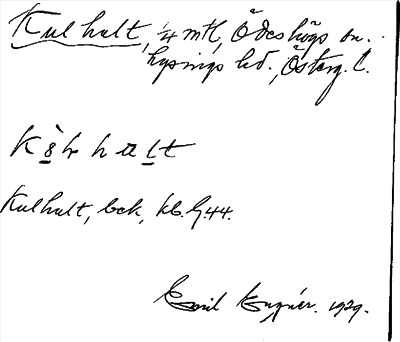 Kulhult, 1/4 mtl, Ödeshögs sn.
Lysings hd., Österg. l.
Kulhult, bek, kb. G. 44.
Emil Enguér. 1929.